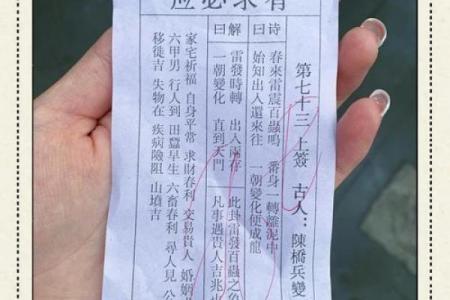 有求必应
第七十三 上簽 古人：陳橋兵變
诗曰
春來雷震百蟲鳴 番身一轉離泥中
始知出入還來往 一朝變化便成龍
解曰
雷發時轉 出入兩存 此封雷發百蟲之象
一朝變化 直到天門 凡事遇貴人吉兆也
家宅祈福 自身平常 求財春利 交易貴人 婚姻
六甲男 行人到 田蠶早生 六畜春利 尋人見 公
移徙吉 失物在 疾病險阻 山墳吉